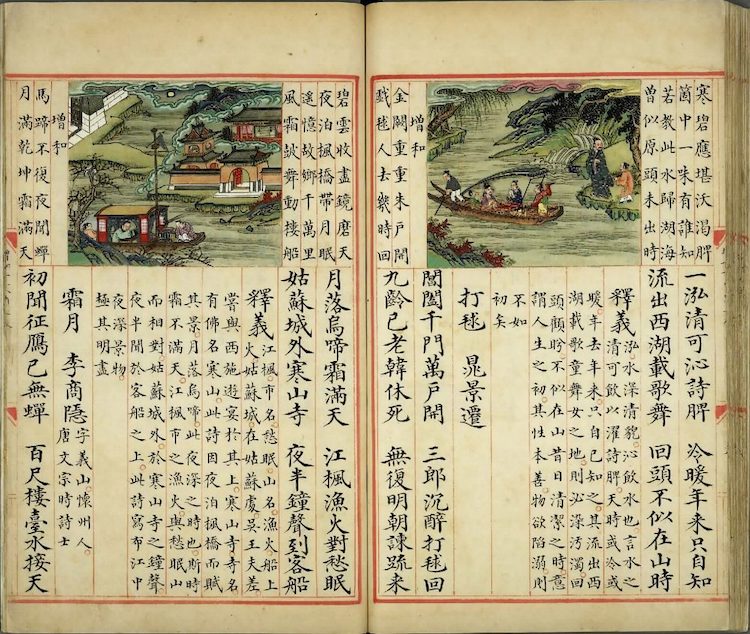 寒碧應堪沃渴脾
箇中一味有誰知
若教此水歸湖海
曾似原頭未出時
增和
金闕重重朱戶開
戲毬人去幾時回
一泓清可沁詩脾 冷暖年来只自知
流出西湖載歌舞 回頭不似在山時
釋義 泓水深清貌沁飲水也言水之
清可飲以濯詩脾天時或冷或
暖年去年来只自己知之其流出西
湖載歌童舞女之地則必深汚濁回
頭顧盻不似在山昔日清潔之時意
謂人生之初其性本善物欲陷溺則
不如
初矣
打毬 晁景遷
閶闔千門萬戶開 三郎沉醉打毬回
九齡已老韓休死 無復明朝諫疏来
碧雲收盡鏡磨天
夜泊楓橋帶月眠
遙憶故鄉千萬里
風霜鼓舞動樓船
增和
馬蹄不復夜聞蟬
月滿乾坤霜滿天
月落烏啼霜滿天 江楓漁火對愁眠
姑蘇城外寒山寺 夜半鐘聲到客船
釋義 江楓市名愁眠山名漁火船上
火姑蘇城在姑蘇虞吳王夫差
嘗與西施遊宴於其上寒山寺寺名
有佛名寒山此詩因夜泊楓橋而賦
其景月落烏啼此夜深之時也斯時
霜不滿天江楓市之漁火與愁眠山
而相對姑蘇城外於寒山寺之鐘聲
夜半聞於客船之上此詩寫布江中
夜深景物
極其明盡
霜月 李商隱 字義山懷州人
唐文宗時詩士
初聞征鴈已無蟬 百尺樓臺水接天